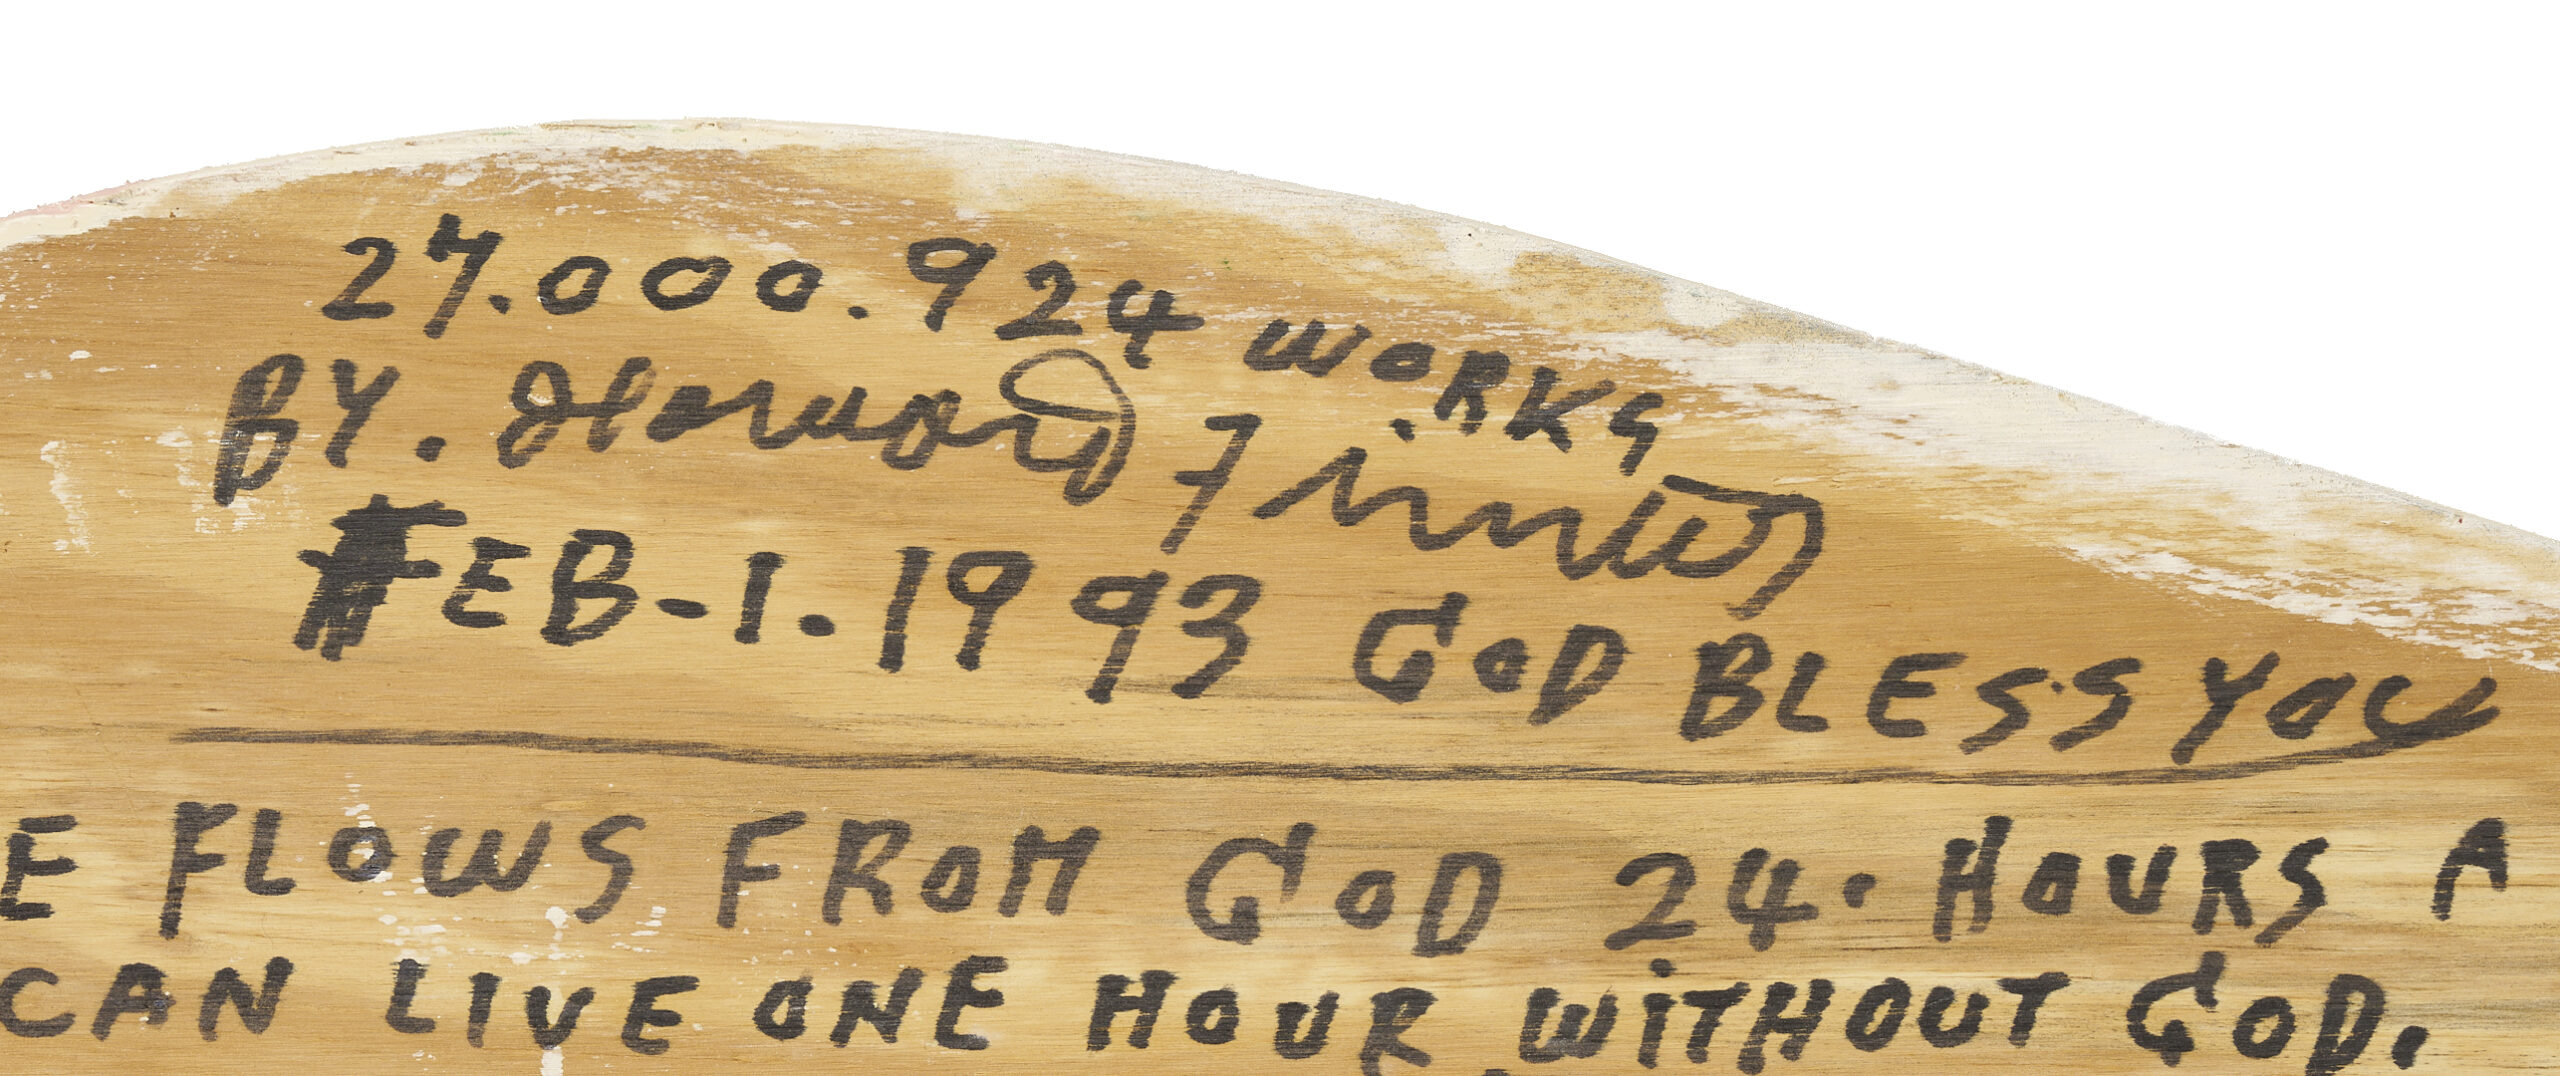 27.000.924 WORKS
BY. Howard Finster
FEB-1.1993 GOD BLESS YOU
E FLOWS FROM GOD 24. HOURS A
CAN LIVE ONE HOUR WITHOUT GOD.